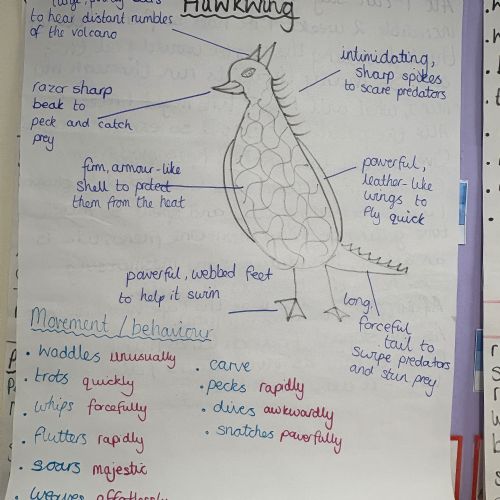 Hawkwing
large, pointy ears
to hear distant rumbles
of the volcano
intimidating,
sharp spikes
to scare predators
razor sharp
beak to
peck and catch
prey
firm, armour-like
shell to protect
them from the heat
powerful,
leather-like
wings to
fly quick
powerful, webbed feet
to help it swim
long,
forceful
tail to
swipe predators
and stun prey
Movement / behaviour
• waddles unusually
• trots quickly
• whips forcefully
• flutters rapidly
• soars majestic
• weaves effortlessly
• carve
• pecks rapidly
• dives awkwardly
• snatches powerfully